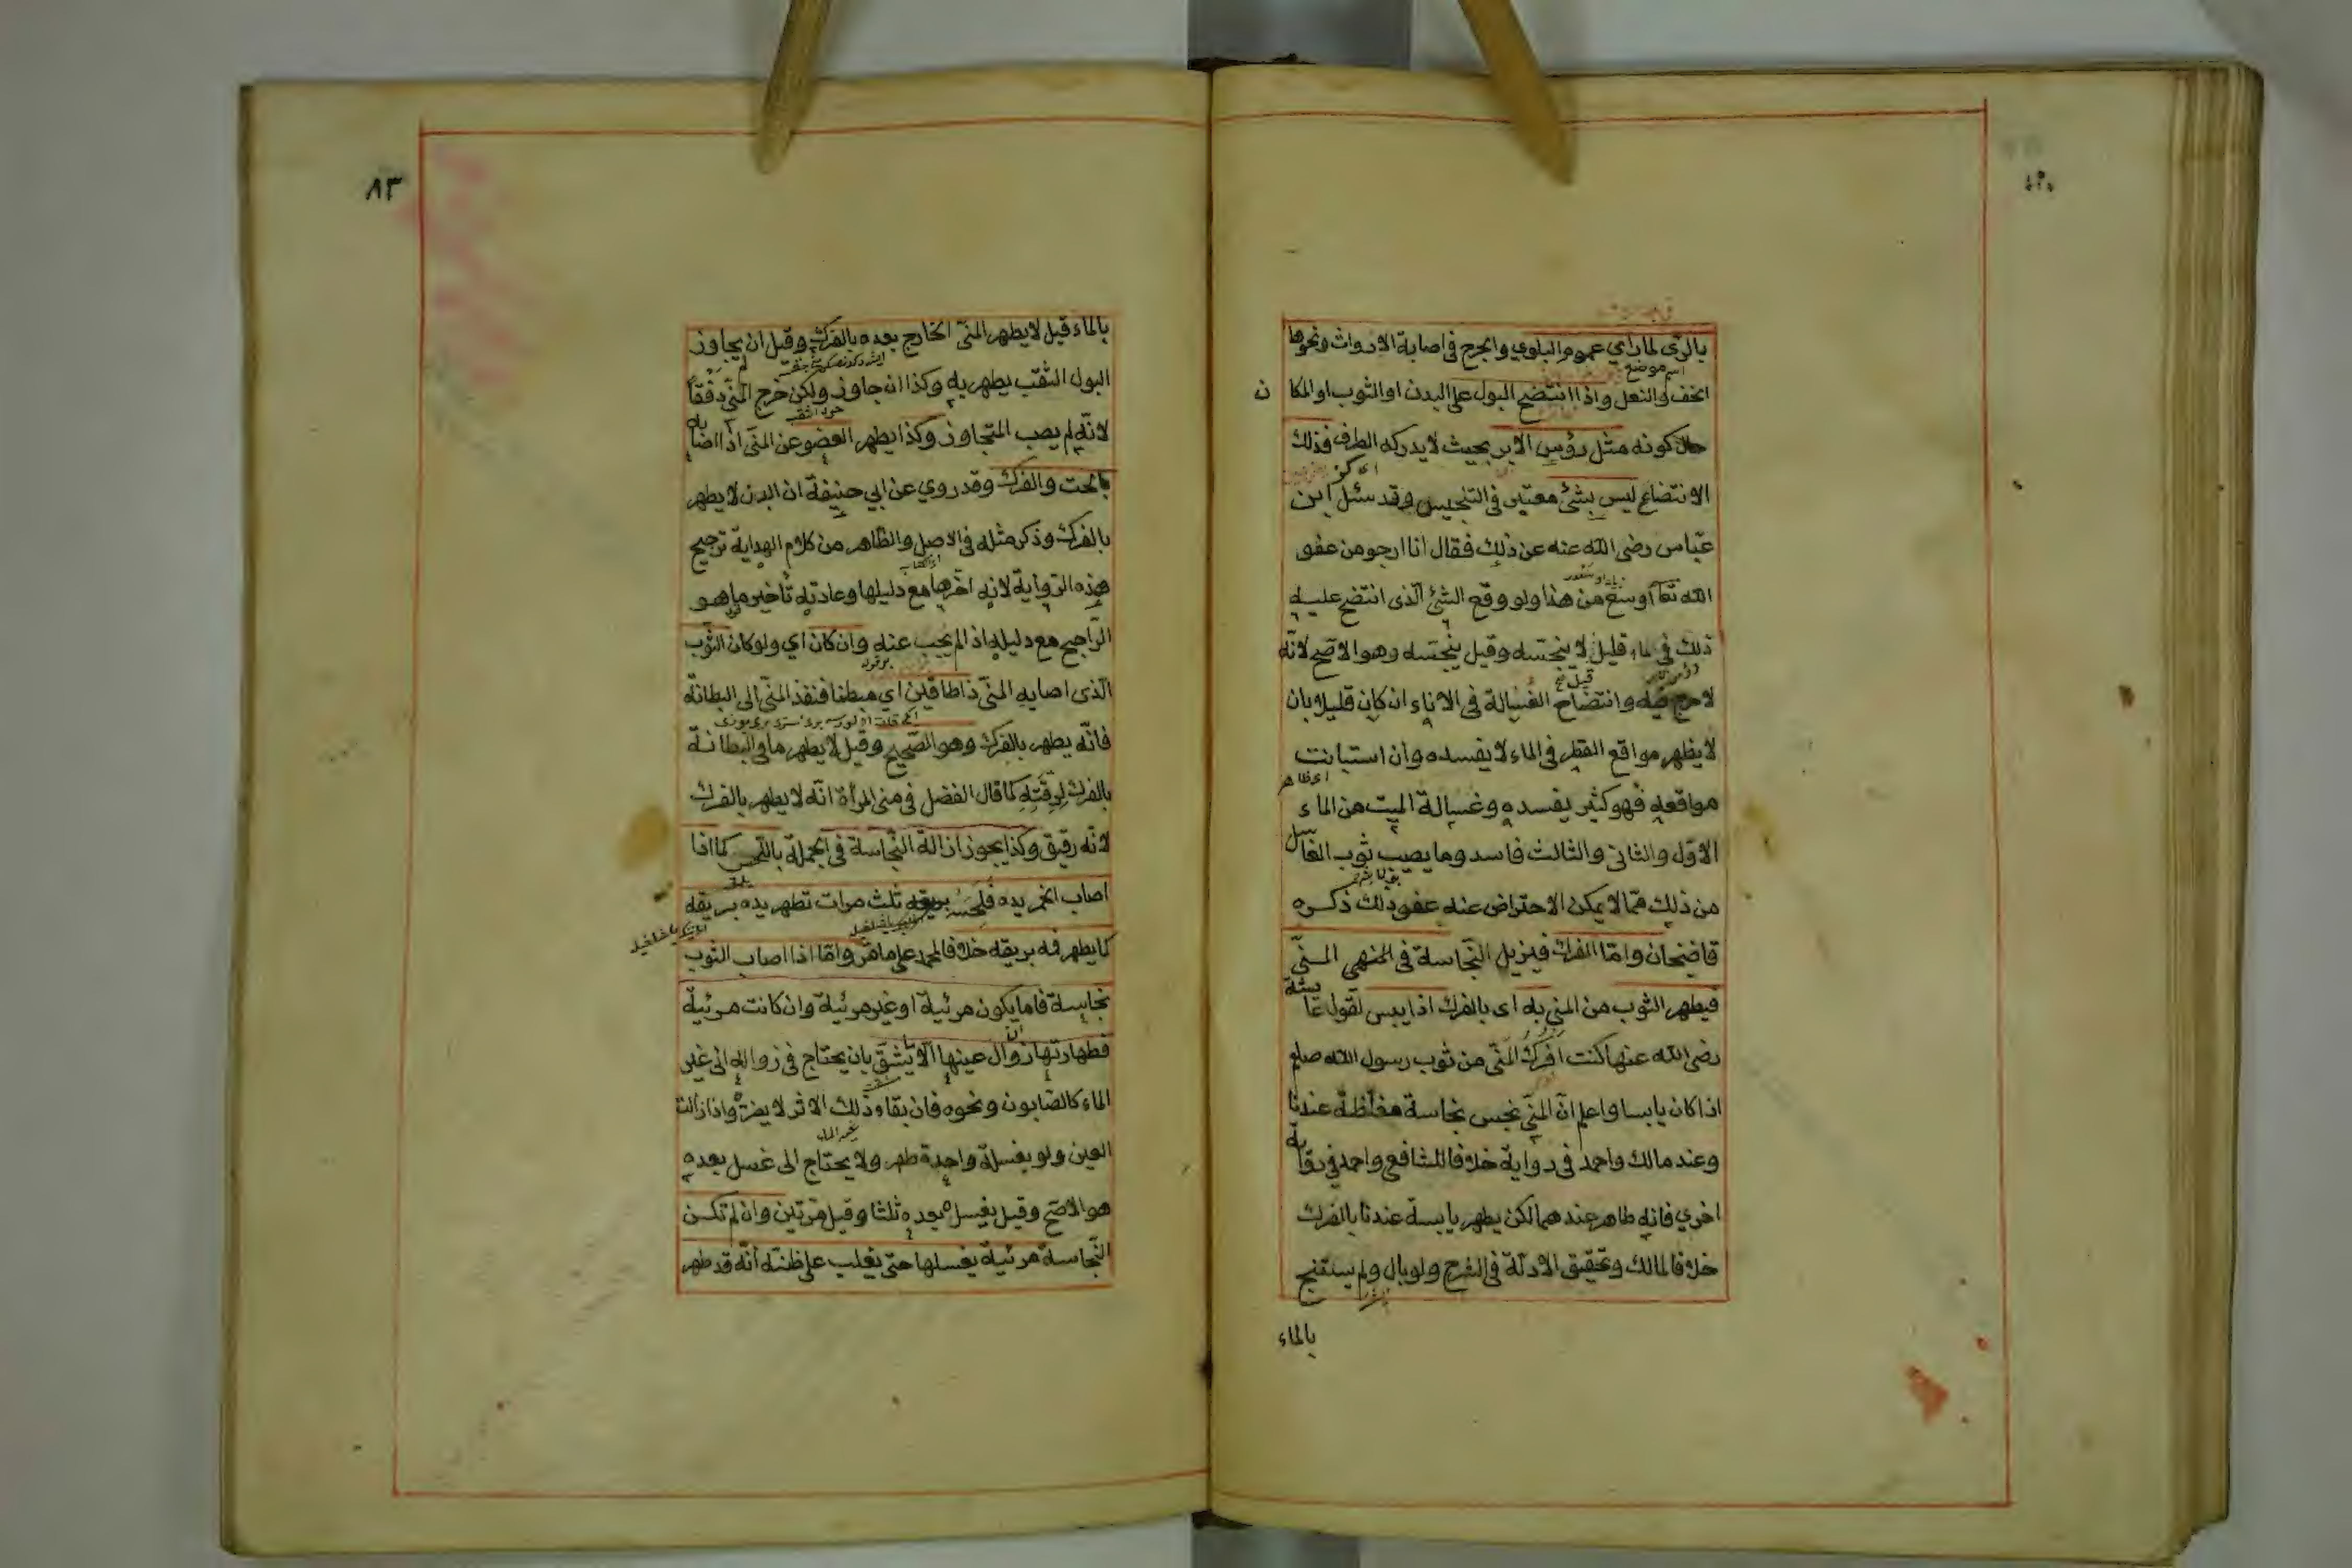 بالرّى لما رأي عموم البلوي والحرج فى اصابة الارواث ونحوها
الخف والنعل واذا انتضح البول على البدن او الثوب او المكا ن
حال كونه مثل رؤس الابر بحيث لا يدركه الطرف فذلك
الانتضاح ليس بشئ معتبر فى التنجيس وقد سئل ابن
عبّاس رضى الله عنه عن ذلك فقال انا ارجو من عفو
الله تعا أوسع من هذا ولو وقع الشئ الّذى انتضح عليه
ذلك فى ماء قليل لا ينجّسه وقيل ينجّسه وهو الاصح لانّه
لا حرج فيه وانتضاح الغسالة فى الاناء ان كان قليلا بان
لا يظهر مواقع القطر فى الماء لا يفسده وان استبانت
مواقعه فهو كثير يفسده وغسالة الميت من الماء
الاوّل والثانى والثالث فاسد وما يصيب ثوب الغاسل
من ذلك ممّا لا يمكن الاحتراض عنه عفو ذلك ذكره
قاضيخان وامّا الفرك فيزيل النّجاسة فى المنهى المنىّ
فيطهر الثوب من المنى به اى بالفرك اذا يبس لقول عايشة
رضى الله عنها كنت افرك المنّى من ثوب رسول الله صلعم
اذا كان يابسا واعلم انّ المنّي نجس نجاسة مغلّظة عندنا
وعند مالك واحمد فى رواية خلافا للشافعى واحمد فى رواية
اخري فانه طاهر عندهما لكن يطهر يابسه عندنا بالفرك
خلافا لمالك وتحقيق الادلّة فى الشرح ولو بال ولم يستنج
بالماء
٨٣
بالماء قيل لا يطهر المنّى الخارج بعده بالفرك وقيل ان لم يجاوز
البول الثقب يطهر به وكذا ان جاوز ولكن خرج المنّي دفقاً
لانّه لم يصب المتجاوز وكذا يطهر العضو عن المنّى اذا اصابه
بالحت والفرك وقد روي عن ابي حنيفة ان البدن لا يطهر
بالفرك وذكر مثله فى الاصل والظاهر من كلام الهداية ترجيح
هذه الرّواية لانه اخّرها مع دليلها وعادته تأخير ما هو
الرّاجح مع دليله اذا لم يجب عنه وان كان اي ولو كان الثّوب
الّذى اصابه المنّى ذا طاقين اي مبطنا فنفذ المنّى الى البطانة
فانّه يطهر بالفرك وهو الصّحيح وقيل لا يطهر ما فى البطانة
بالفرك لرقّته كما قال الفضل فى منى المرأة انّه لا يطهر بالفرك
لانّه رقيق وكذا يجوز ازالة النّجاسة فى الجملة باللّحس كما اذا
اصاب الخمر يده فلحسه بريقه ثلث مرات تطهر يده بريقه
كما يطهر فمه بريقه خلافا لمحمد على ما مّر وامّا اذا اصاب الثوب
نجاسة فاما يكون مرئية او غير مرئية وان كانت مرئية
فطهارتها زوال عينها الا ان يشقّ بان يحتاج فى زواله الى غير
الماء كالصّابون ونحوه فان بقاء ذلك الاثر لا يضرّه واذا زالت
العين ولو بغسلة واحدة طهر ولا يحتاج الى غسل بعده
هو الاصّح وقيل يغسل بعده ثلثا وقيل مرّتين وان لم تكن
النّجاسة مرئية يغسلها حتى يغلب على ظنّه أنّه قد طهر